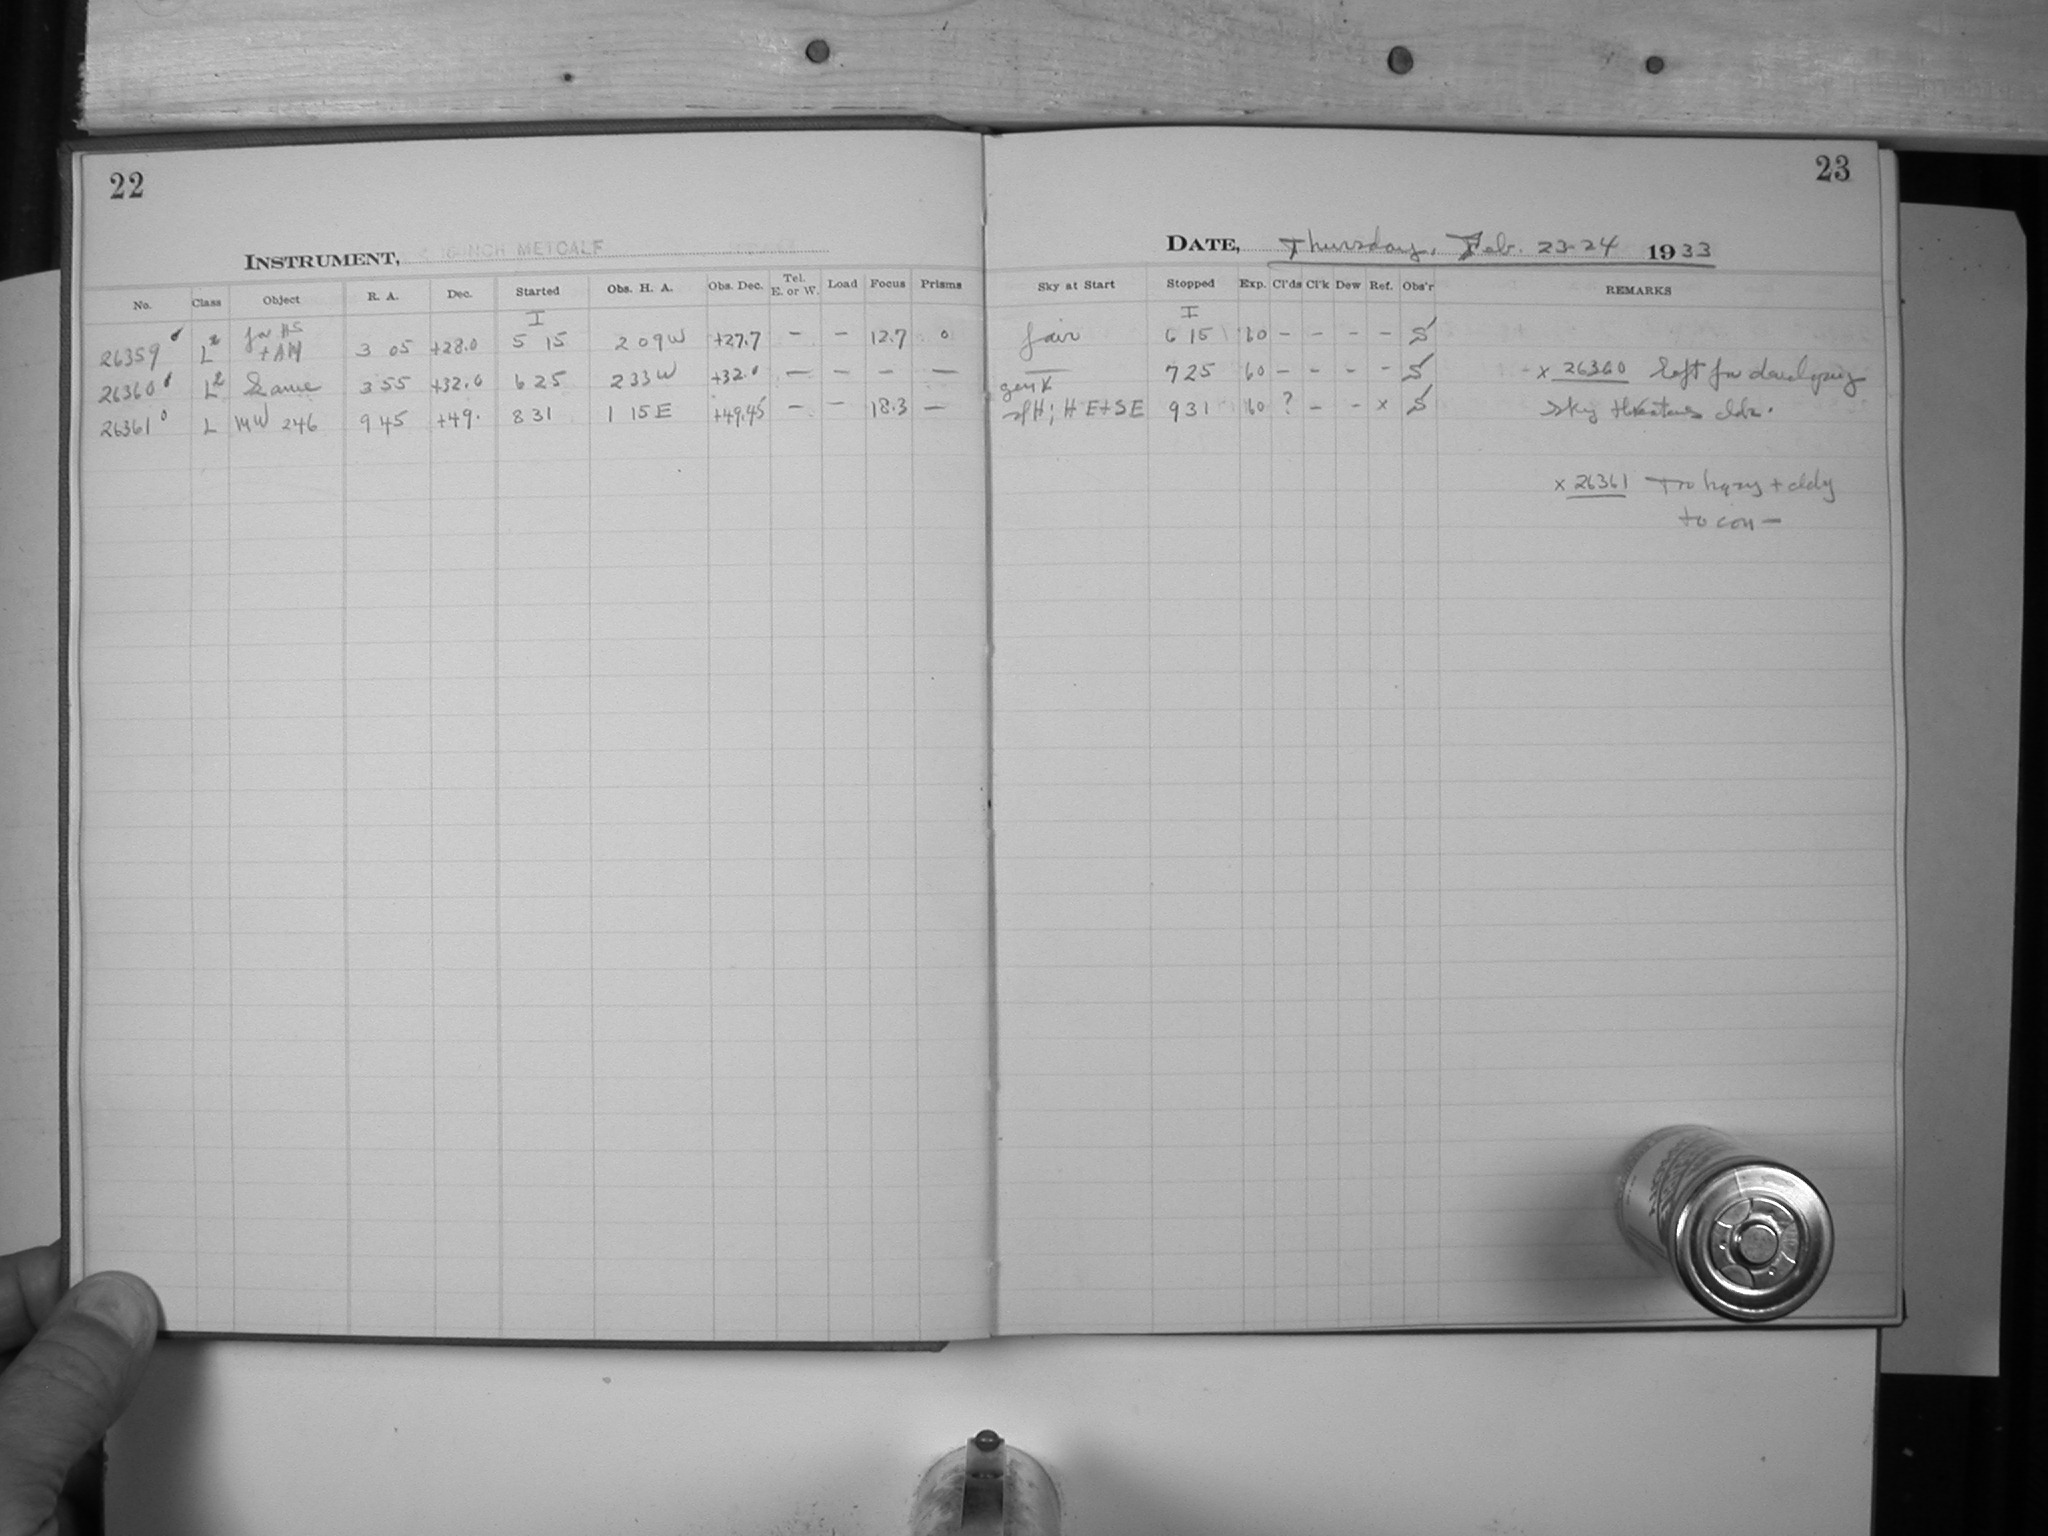 22
INSTRUMENT, 16-INCH METCALF
No. Class Object R. A. Dec. Started Obs. H. A. Obs. Dec. Tel. E. or W. Load Focus Prisms
I
26359 L2 for HS + AM 3 05 +28.0 5 15 2 09W +27.7 – – 12.7 0
26360 L2 Same 3 55 +32.0 6 25 2 33W +32.0 – – – –
26361 L MW 246 9 45 +49. 8 31 1 15E +49.45 – – 18.3 –
23
DATE, Thursday, Feb. 23-24 1933
Sky at Start Stopped Exp. Cl'ds Cl'k Dew Ref. Obs'r REMARKS
I
fair 6 15 60 – – – – S
— 7 25 60 – – – – S x 26360 left for developing
H E+SE 9 31 60 ? – – x S Sky
x 26361 Too hazy + cldy
to con –